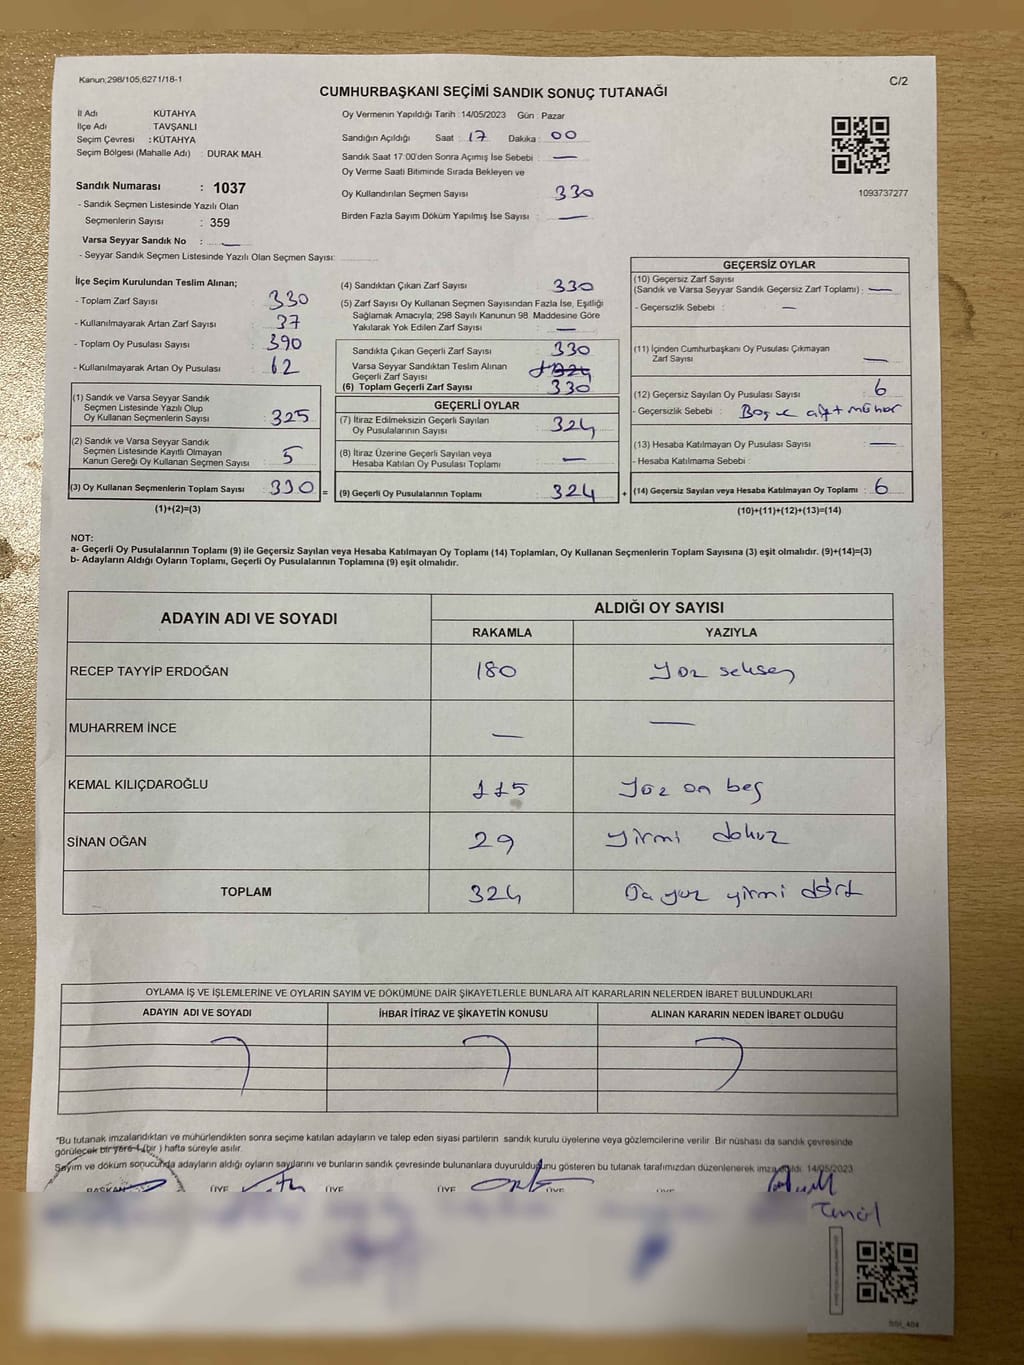 Kanun;298/105,6271/18-1
C/2
CUMHURBAŞKANI SEÇİMİ SANDIK SONUÇ TUTANAĞI
İl Adı KÜTAHYA
İlçe Adı TAVŞANLI
Seçim Çevresi : KÜTAHYA
Seçim Bölgesi (Mahalle Adı) : DURAK MAH.
Sandık Numarası : 1037
- Sandık Seçmen Listesinde Yazılı Olan
Seçmenlerin Sayısı : 359
Varsa Seyyar Sandık No : —
- Seyyar Sandık Seçmen Listesinde Yazılı Olan Seçmen Sayısı:
Oy Vermenin Yapıldığı Tarih : 14/05/2023 Gün : Pazar
Sandığın Açıldığı Saat : 17 Dakika : 00
Sandık Saat 17:00'den Sonra Açımış İse Sebebi : —
Oy Verme Saati Bitiminde Sırada Bekleyen ve
Oy Kullandırılan Seçmen Sayısı 330
Birden Fazla Sayım Döküm Yapılmış İse Sayısı : —
1093737277
İlçe Seçim Kurulundan Teslim Alınan;
- Toplam Zarf Sayısı 330
- Kullanılmayarak Artan Zarf Sayısı : 37
- Toplam Oy Pusulası Sayısı : 390
- Kullanılmayarak Artan Oy Pusulası 62
(1) Sandık ve Varsa Seyyar Sandık
Seçmen Listesinde Yazılı Olup
Oy Kullanan Seçmenlerin Sayısı : 325
(2) Sandık ve Varsa Seyyar Sandık
Seçmen Listesinde Kayıtlı Olmayan
Kanun Gereği Oy Kullanan Seçmen Sayısı : 5
(3) Oy Kullanan Seçmenlerin Toplam Sayısı : 330 =
(1)+(2)=(3)
(4) Sandıktan Çıkan Zarf Sayısı : 330
(5) Zarf Sayısı Oy Kullanan Seçmen Sayısından Fazla İse, Eşitliği
Sağlamak Amacıyla; 298 Sayılı Kanunun 98. Maddesine Göre
Yakılarak Yok Edilen Zarf Sayısı : —
Sandıkta Çıkan Geçerli Zarf Sayısı 330
Varsa Seyyar Sandıktan Teslim Alınan
Geçerli Zarf Sayısı
(6) Toplam Geçerli Zarf Sayısı : 330
GEÇERLİ OYLAR
(7) İtiraz Edilmeksizin Geçerli Sayılan
Oy Pusulalarının Sayısı : 324
(8) İtiraz Üzerine Geçerli Sayılan veya
Hesaba Katılan Oy Pusulası Toplamı : —
(9) Geçerli Oy Pusulalarının Toplamı : 324 +
GEÇERSİZ OYLAR
(10) Geçersiz Zarf Sayısı
(Sandık ve Varsa Seyyar Sandık Geçersiz Zarf Toplamı) : —
- Geçersizlik Sebebi : —
(11) İçinden Cumhurbaşkanı Oy Pusulası Çıkmayan
Zarf Sayısı : —
(12) Geçersiz Sayılan Oy Pusulası Sayısı : 6
- Geçersizlik Sebebi : Boş
(13) Hesaba Katılmayan Oy Pusulası Sayısı : —
- Hesaba Katılmama Sebebi :
(14) Geçersiz Sayılan veya Hesaba Katılmayan Oy Toplamı : 6
(10)+(11)+(12)+(13)=(14)
NOT:
a- Geçerli Oy Pusulalarının Toplamı (9) ile Geçersiz Sayılan veya Hesaba Katılmayan Oy Toplamı (14) Toplamları, Oy Kullanan Seçmenlerin Toplam Sayısına (3) eşit olmalıdır. (9)+(14)=(3)
b- Adayların Aldığı Oyların Toplamı, Geçerli Oy Pusulalarının Toplamına (9) eşit olmalıdır.
ADAYIN ADI VE SOYADI
ALDIĞI OY SAYISI
RAKAMLA YAZIYLA
RECEP TAYYİP ERDOĞAN 180 Yüz seksen
MUHARREM İNCE — —
KEMAL KILIÇDAROĞLU 115 Yüz on beş
SİNAN OĞAN 29 Yirmi dokuz
TOPLAM 324 yüz yirmi dört
OYLAMA İŞ VE İŞLEMLERİNE VE OYLARIN SAYIM VE DÖKÜMÜNE DAİR ŞİKAYETLERLE BUNLARA AİT KARARLARIN NELERDEN İBARET BULUNDUKLARI
ADAYIN ADI VE SOYADI İHBAR İTİRAZ VE ŞİKAYETİN KONUSU ALINAN KARARIN NEDEN İBARET OLDUĞU
"Bu tutanak imzalandıktan ve mühürlendikten sonra seçime katılan adayların ve talep eden siyasi partilerin sandık kurulu üyelerine veya gözlemcilerine verilir. Bir nüshası da sandık çevresinde
görülecek bir yere 1 (bir ) hafta süreyle asılır.
Sayım ve döküm sonucunda adayların aldığı oyların sayılarını ve bunların sandık çevresinde bulunanlara duyurulduğunu gösteren bu tutanak tarafımızdan düzenlenerek imzalandı. 14/05/2023
BAŞKAN ÜYE ÜYE ÜYE ÜYE ÜYE